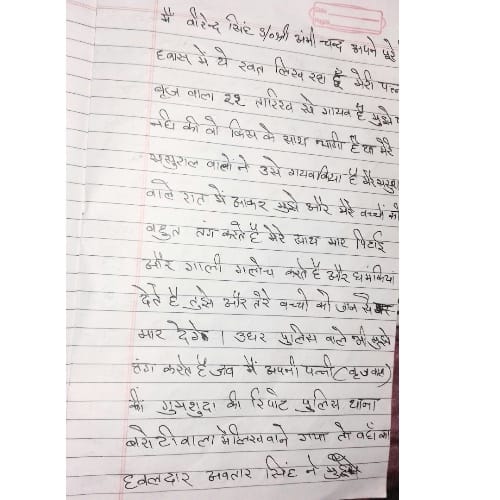 मैं वीरेन्द्र सिंह S/o श्री अमी चन्द अपने पूरे
हवास में ये खत लिख रहा हूँ मेरी पत्न
बृज वाला २२ तारिख से गायव है मुझे प
नहि की वो किस के साथ भागी है या मेरे
ससुराल वालो ने उसे गायवकिया है मेरे ससुरा
वाले रात में आकर मुझे और मेरे वच्चो को
वहुत तंग करते है मेरे साथ मार पिटाई
और गाली गलोच करते है और धमकिया
देते है तुझे और तेरे वच्चो को जान से
मार देगे । उधर पुलिस वाले भी मुझे
तंग करते है जव मैं अपनी पत्नी (वृज वाला)
की गुमशुदा की रिपोट पुलिस थाना
बरोटीवाला मे लिखवाने गया तो वहाँ का
हवलदार अवतार सिंह ने मुझे